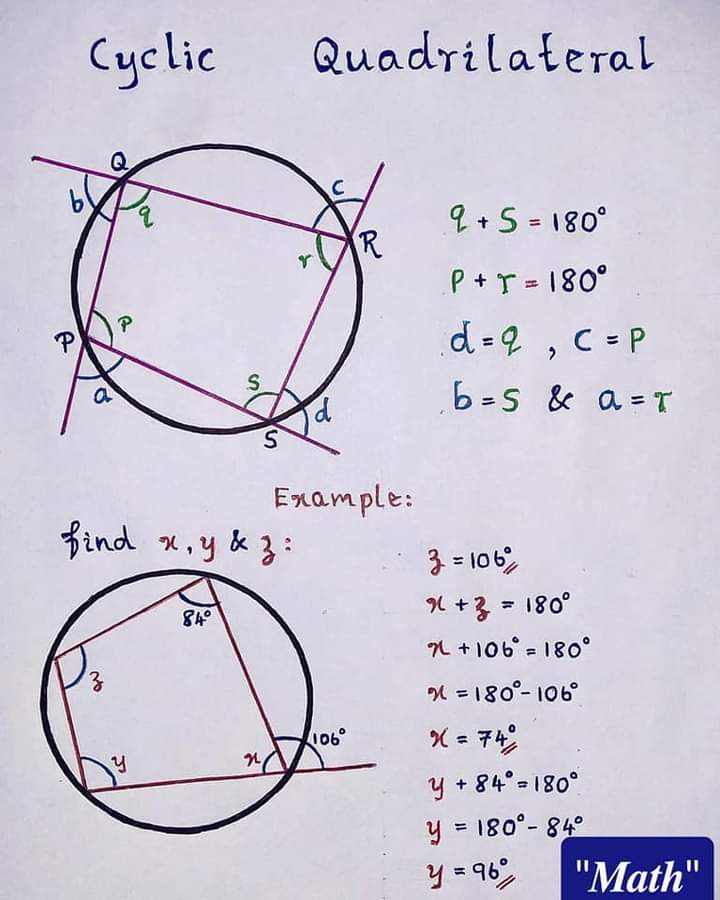 Cyclic Quadrilateral
Q
b
q
c
r
R
P
p
a
s
d
S
q + s = 180°
p + r = 180°
d = q , c = p
b = s & a = r
Example:
find x, y & z:
84°
z
y
x
106°
z = 106°
x + z = 180°
x + 106° = 180°
x = 180° - 106°
x = 74°
y + 84° = 180°
y = 180° - 84°
y = 96°
"Math"